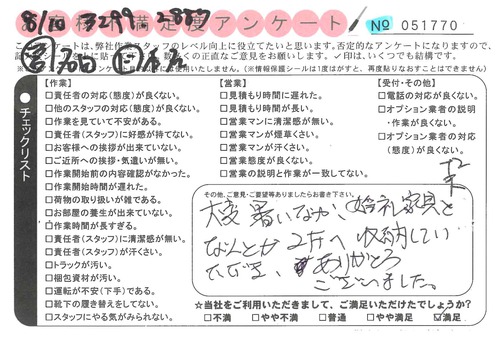 お客様満足度アンケート
8/10
No 051770
このアンケートは、弊社作業スタッフのレベル向上に役立てたいと思います。否定的なアンケートになりますので、
お願いします。✓印は、いくつでも結構です。
使用いたしません。(※情報保護シールは1度はがすと、再度貼りなおすことはできません)
●チェックリスト
【作業】
□責任者の対応(態度)が良くない。
□他のスタッフの対応(態度)が良くない。
□作業を見ていて不安がある。
□責任者(スタッフ)に好感が持てない。
□お客様への挨拶が出来ていない。
□ご近所への挨拶・気遣いが無い。
□作業開始前の内容確認がなかった。
□作業開始時間が遅れた。
□荷物の取り扱いが雑である。
□お部屋の養生が出来ていない。
□作業時間が長すぎる。
□責任者(スタッフ)に清潔感が無い。
□責任者(スタッフ)が汗くさい。
□トラックが汚い。
□梱包資材が汚い。
□運転が不安(下手)である。
□靴下の履き替えをしてない。
□スタッフにやる気がみられない。
【営業】
□見積もり時間に遅れた。
□見積もり時間が長い。
□営業マンに清潔感が無い。
□営業マンが煙草くさい。
□営業マンが汗くさい。
□営業態度が良くない。
□営業の説明と作業が一致してない。
【受付・その他】
□電話の対応が良くない。
□オプション業者の説明
・作業が良くない。
□オプション業者の対応
(態度)が良くない。
その他、ご意見・ご要望等ありましたらお書き下さい。
大変暑いなか、婚礼家具を
なんとか2Fへ収納してい
ただき、ありがとう
ございました。
☆当社をご利用いただきまして、ご満足いただけたでしょうか?
□不満 □やや不満 □普通 □やや満足 ☑満足